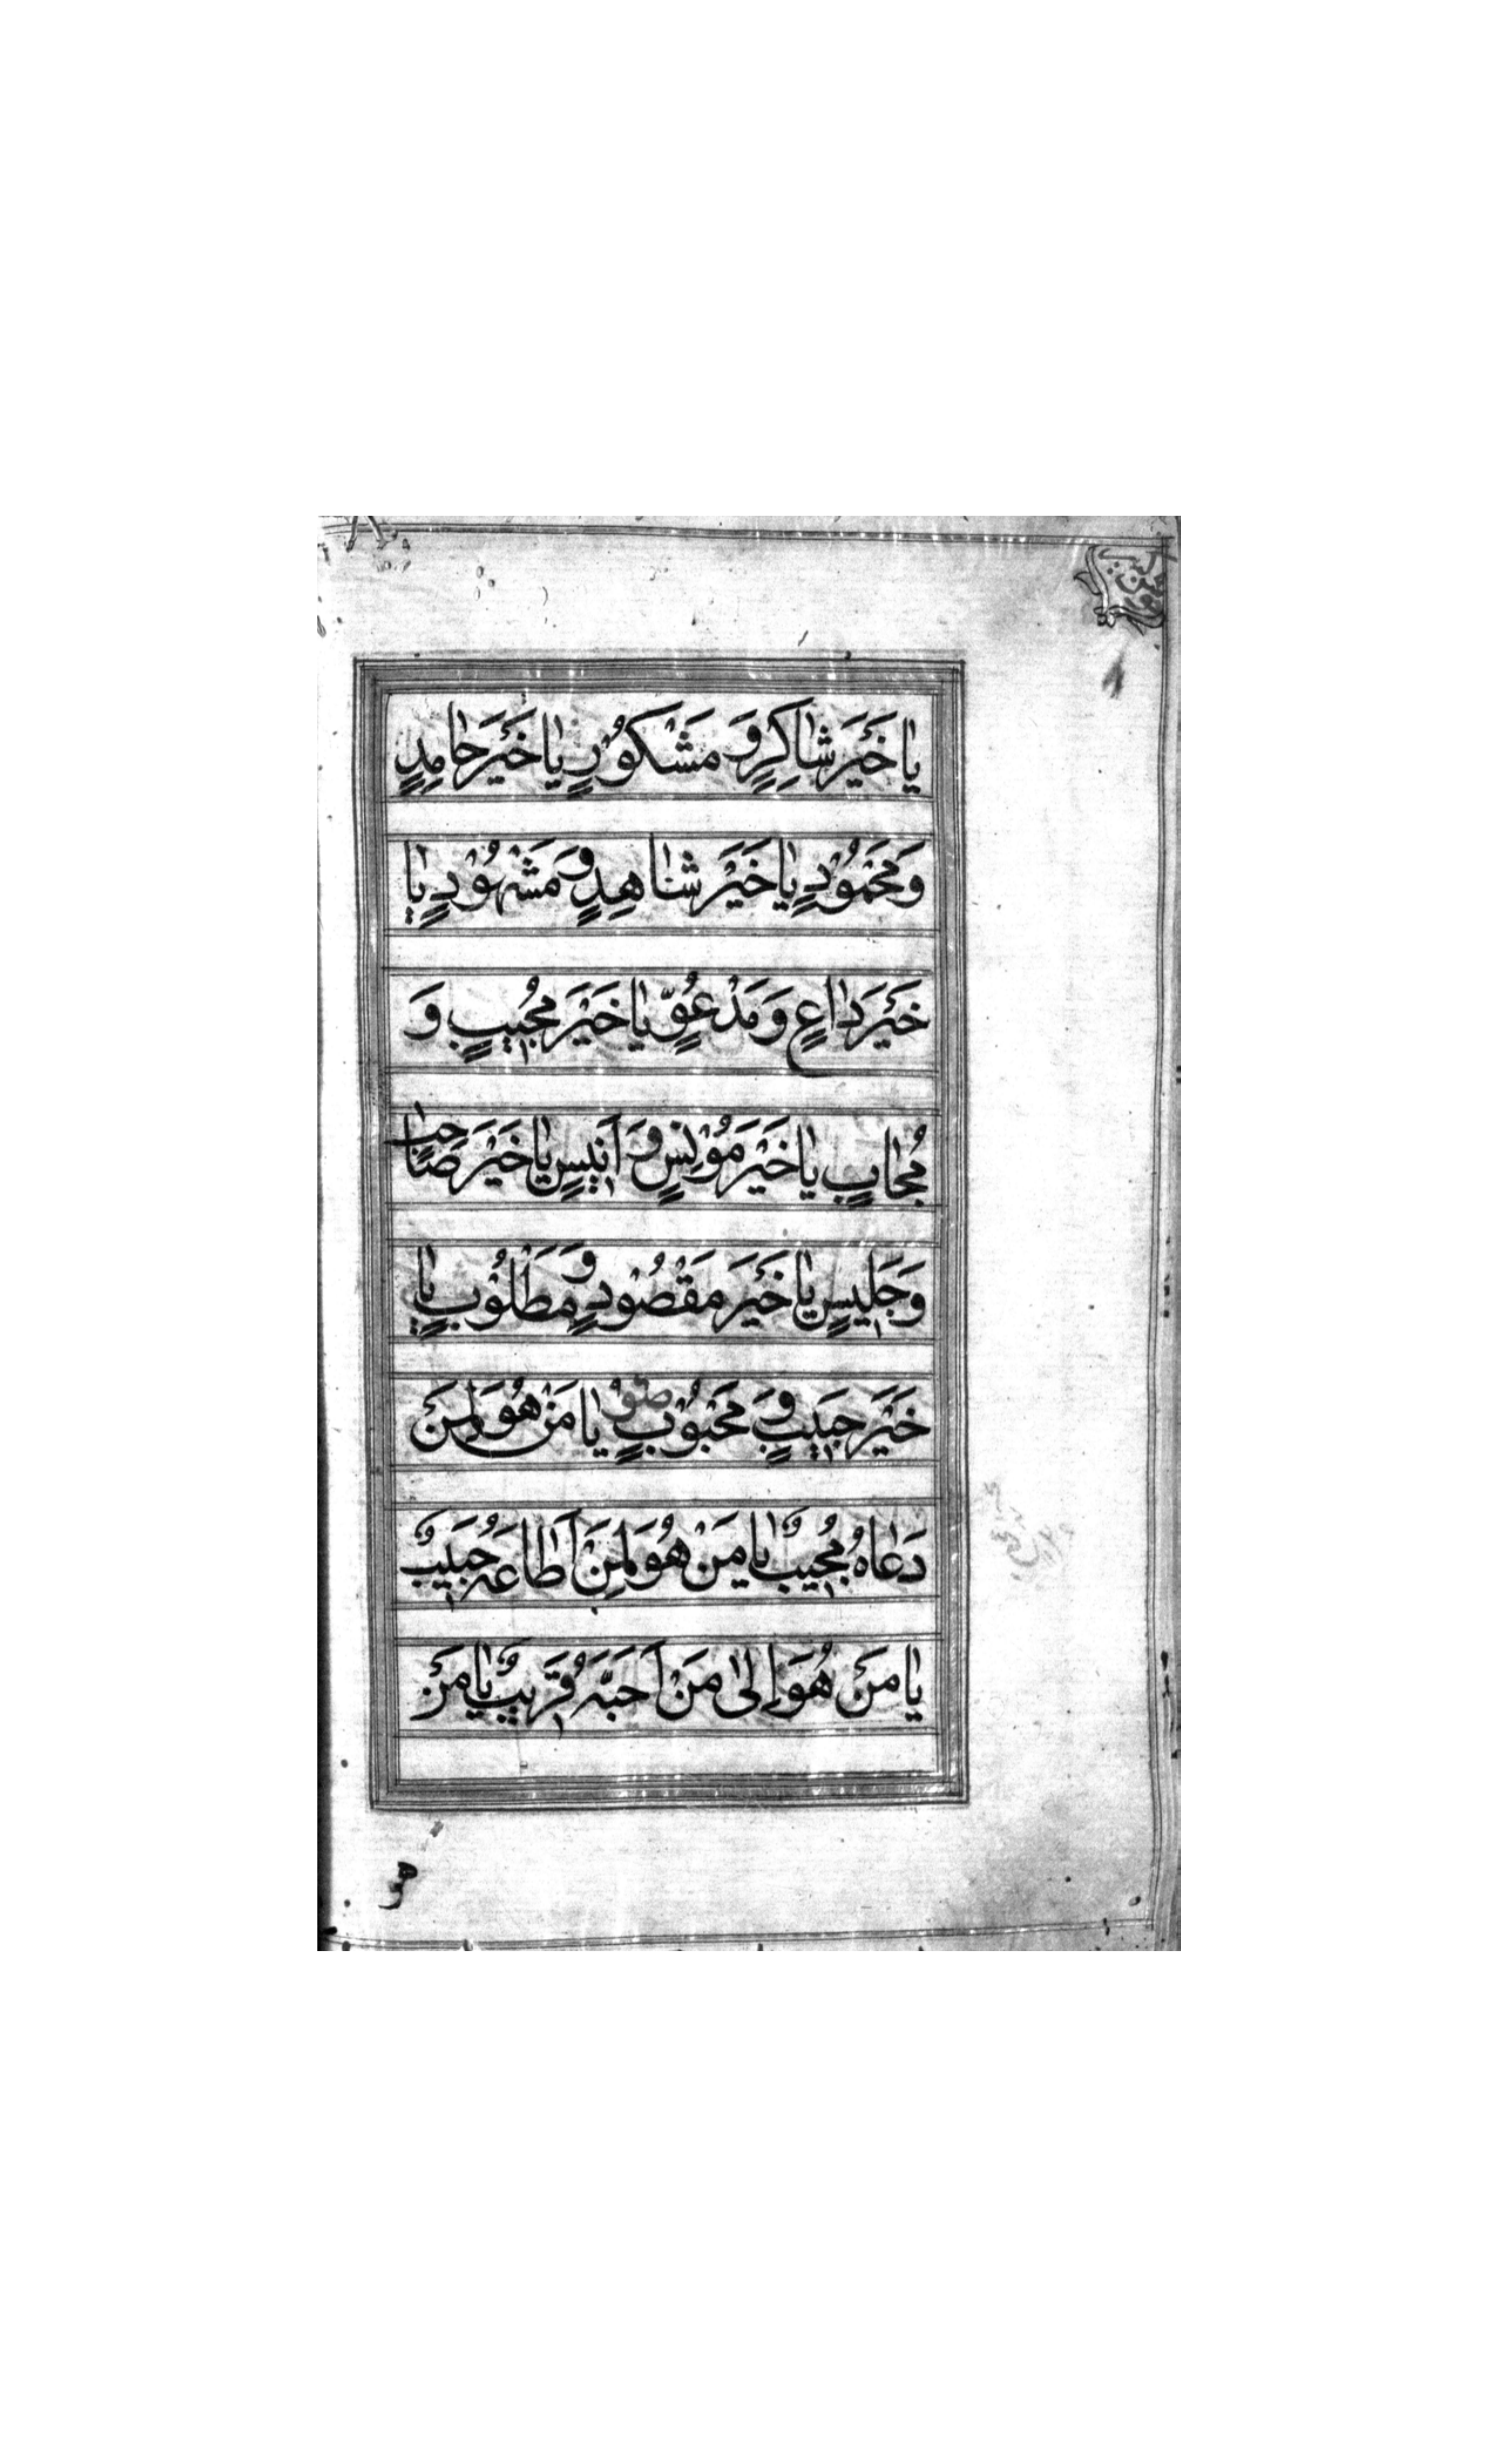 يٰا خَيْرَ شٰاكِرٍ وَ مَشْكُوْرٍ يٰا خَيْرَ حٰامِدٍ
وَ مَحْمُوْدٍ يٰا خَيْرَ شٰاهِدٍ وَ مَشْهُوْدٍ يٰا
خَيْرَ دٰاعٍ وَ مَدْعُوٍّ يٰا خَيْرَ مُجٖيبٍ وَ
مُجٰابٍ يٰا خَيْرَ مُوْنِسٍ وَ اَنٖيسٍ يٰا خَيْرَ صٰاحِبٍ
وَ جَلٖيسٍ يٰا خَيْرَ مَقْصُوْدٍ وَ مَطْلُوْبٍ يٰا
خَيْرَ حَبٖيبٍ وَ مَحْبُوْبٍ يٰا مَنْ هُوَ لِمَنْ
دَعٰاهُ مُجٖيبٌ يٰا مَنْ هُوَ لِمَنْ اَطٰاعَهُ حَبٖيبٌ
يٰا مَنْ هُوَ اِلىٰ مَنْ اَحَبَّهُ قَرٖيبٌ يٰا مَنْ
هو